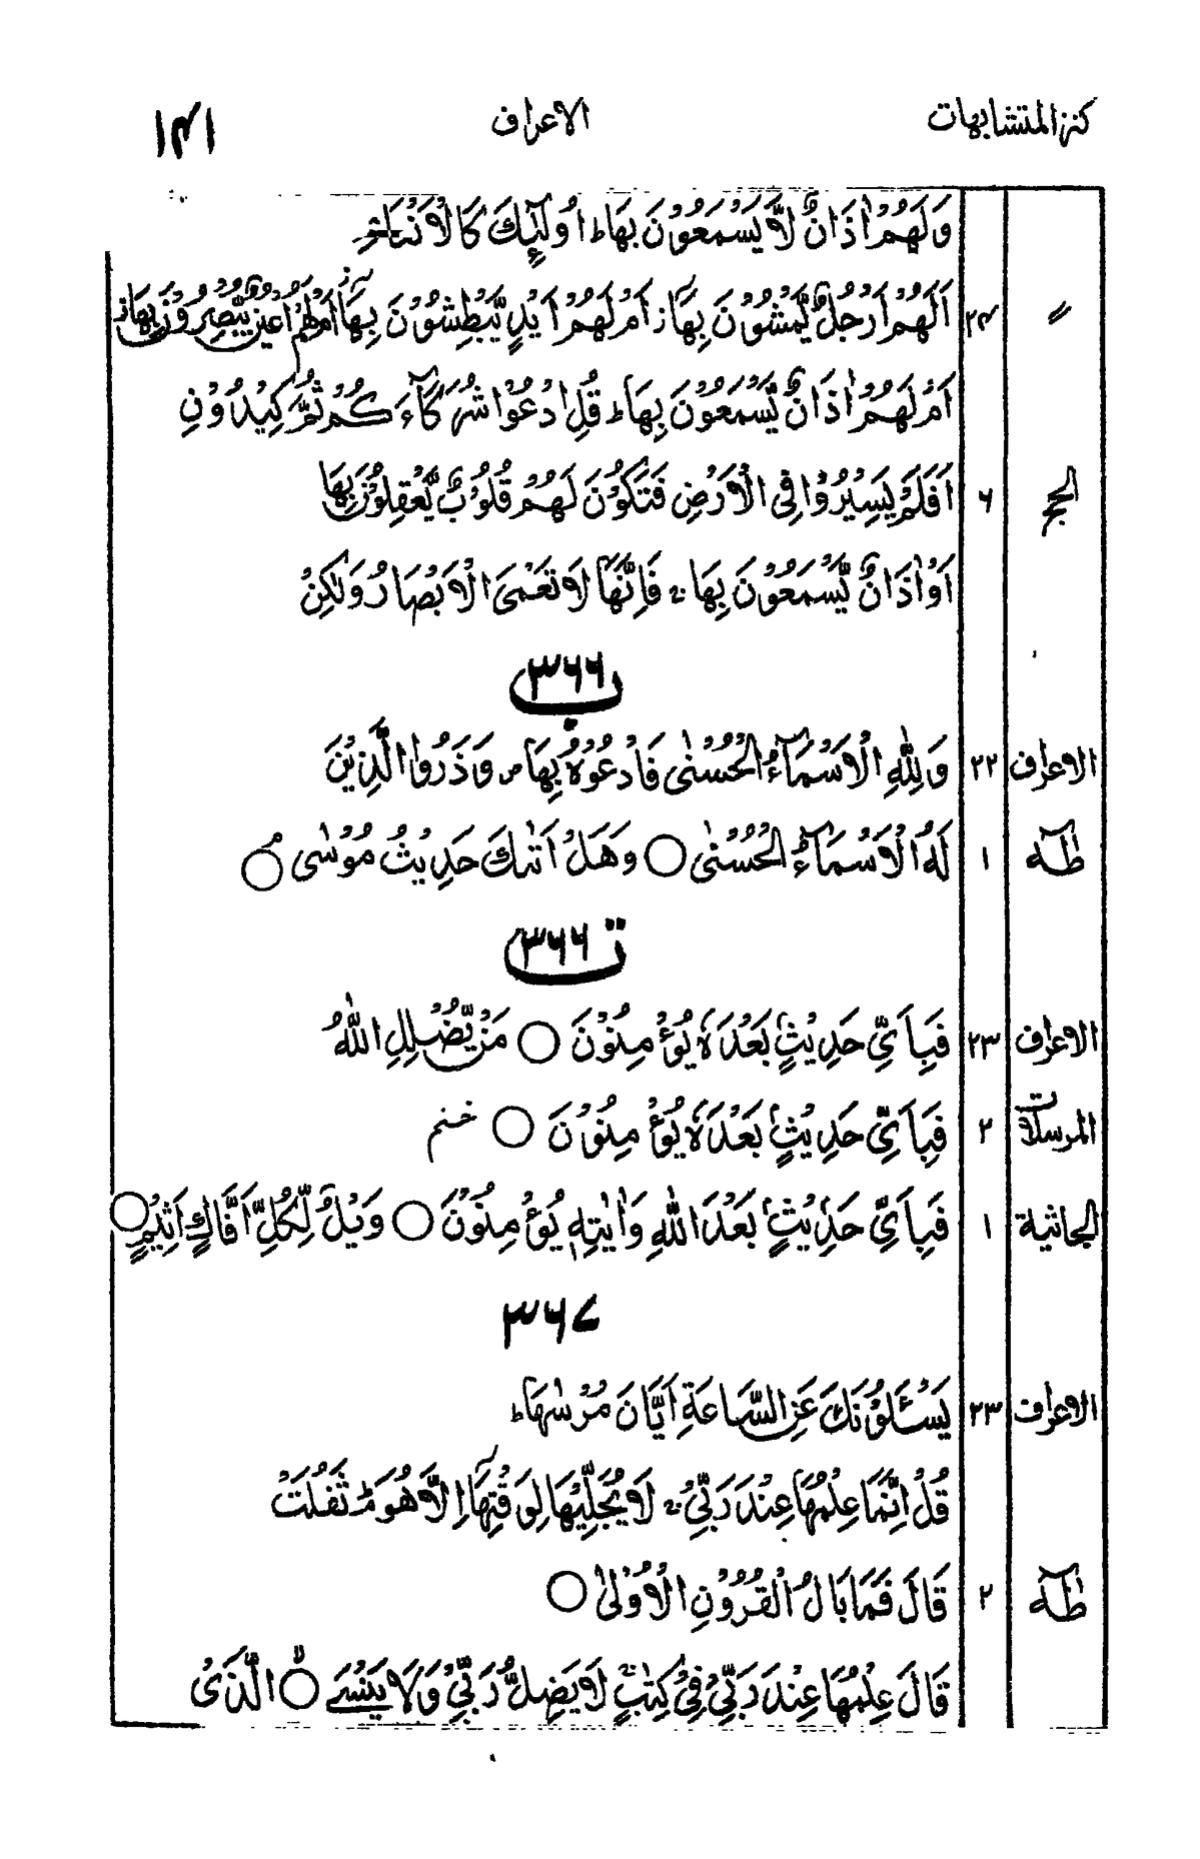 كنز المتشابهات الاعراف ١٤١
وَلَهُمْ اٰذَانٌ لَّا يَسْمَعُوْنَ بِهَا ؕ اُولٰٓئِكَ كَالْاَنْعَامِ
〃 ٢٤ اَلَهُمْ اَرْجُلٌ يَّمْشُوْنَ بِهَآ ز اَمْ لَهُمْ اَيْدٍ يَّبْطِشُوْنَ بِهَآ ز اَمْ لَهُمْ اَعْيُنٌ يُّبْصِرُوْنَ بِهَآ ز
اَمْ لَهُمْ اٰذَانٌ يَّسْمَعُوْنَ بِهَا ؕ قُلِ ادْعُوْا شُرَكَآءَكُمْ ثُمَّ كِيْدُوْنِ
الحج ٦ اَفَلَمْ يَسِيْرُوْا فِى الْاَرْضِ فَتَكُوْنَ لَهُمْ قُلُوْبٌ يَّعْقِلُوْنَ بِهَآ
اَوْ اٰذَانٌ يَّسْمَعُوْنَ بِهَا ۚ فَاِنَّهَا لَا تَعْمَى الْاَبْصَارُ وَلٰكِنْ
٣٦٦ ب
الاعراف ٢٢ وَلِلّٰهِ الْاَسْمَآءُ الْحُسْنٰى فَادْعُوْهُ بِهَا ص وَذَرُوا الَّذِيْنَ
طٰهٰ ١ لَهُ الْاَسْمَآءُ الْحُسْنٰى ○ وَهَلْ اَتٰىكَ حَدِيْثُ مُوْسٰى ○
٣٦٦ ت
الاعراف ٢٣ فَبِاَىِّ حَدِيْثٍۢ بَعْدَهٗ يُؤْمِنُوْنَ ○ مَنْ يُّضْلِلِ اللّٰهُ
المرسلات ٢ فَبِاَىِّ حَدِيْثٍۢ بَعْدَهٗ يُؤْمِنُوْنَ ○ ختم
الجاثية ١ فَبِاَىِّ حَدِيْثٍۢ بَعْدَ اللّٰهِ وَاٰيٰتِهٖ يُؤْمِنُوْنَ ○ وَيْلٌ لِّكُلِّ اَفَّاكٍ اَثِيْمٍ ○
٣٦٧
الاعراف ٢٣ يَسْـَٔلُوْنَكَ عَنِ السَّاعَةِ اَيَّانَ مُرْسٰىهَا ؕ
قُلْ اِنَّمَا عِلْمُهَا عِنْدَ رَبِّىْ ۚ لَا يُجَلِّيْهَا لِوَقْتِهَآ اِلَّا هُوَ ؔ ثَقُلَتْ
طٰهٰ ٢ قَالَ فَمَا بَالُ الْقُرُوْنِ الْاُوْلٰى ○
قَالَ عِلْمُهَا عِنْدَ رَبِّىْ فِىْ كِتٰبٍ ۚ لَا يَضِلُّ رَبِّىْ وَلَا يَنْسَى ○ الَّذِىْ